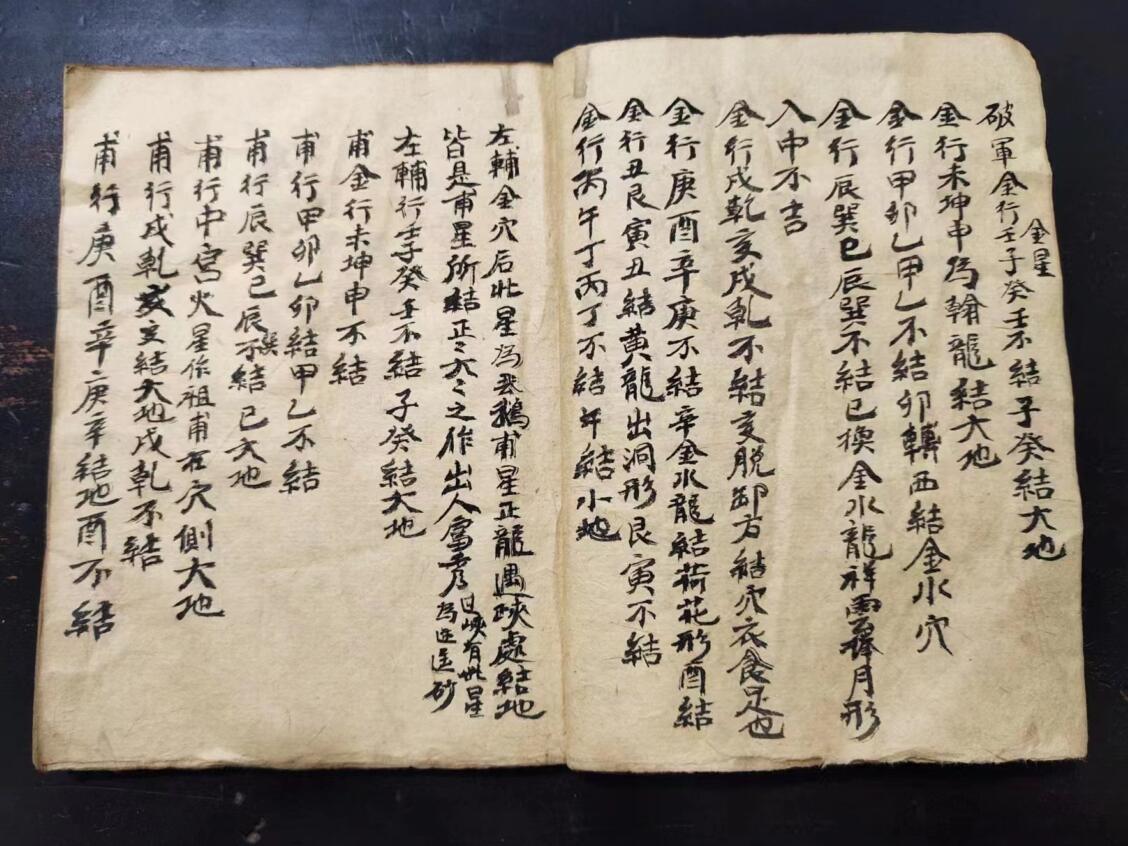 破軍金行壬子癸壬不結子癸結大地
金星
金行未坤申為翰龍結大地
金行甲卯乙甲乙不結卯轉西結金水穴
金行辰巽巳辰巽不結巳換金水龍祥雲捧月形
入中不吉
金行戌乾亥戌乾不結亥脫卸方結穴衣食足也
金行庚酉辛庚不結辛金水龍結荷花形酉結
金行丑艮寅丑結黃龍出洞形艮寅不結
金行丙午丁丙丁不結午結小地
左輔金穴后此星為天鵝甫星正龍遇峽處結地
皆是甫星所結正々六々之作出人富秀
过峽有此星
為迎送砂
左輔行壬子癸壬不結子癸結大地
甫金行未坤申不結
甫行甲卯乙卯結甲乙不結
甫行辰巽巳辰巽不結巳大地
甫行中宮火星作祖甫在穴側大地
甫行戌乾亥亥結大地戌乾不結
甫行庚酉辛庚辛結地酉不結